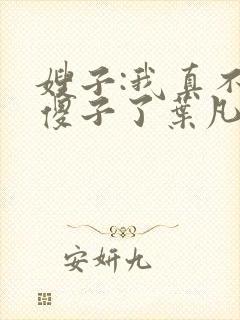 嫂子:我真不
傻子了葉凡
安妍九